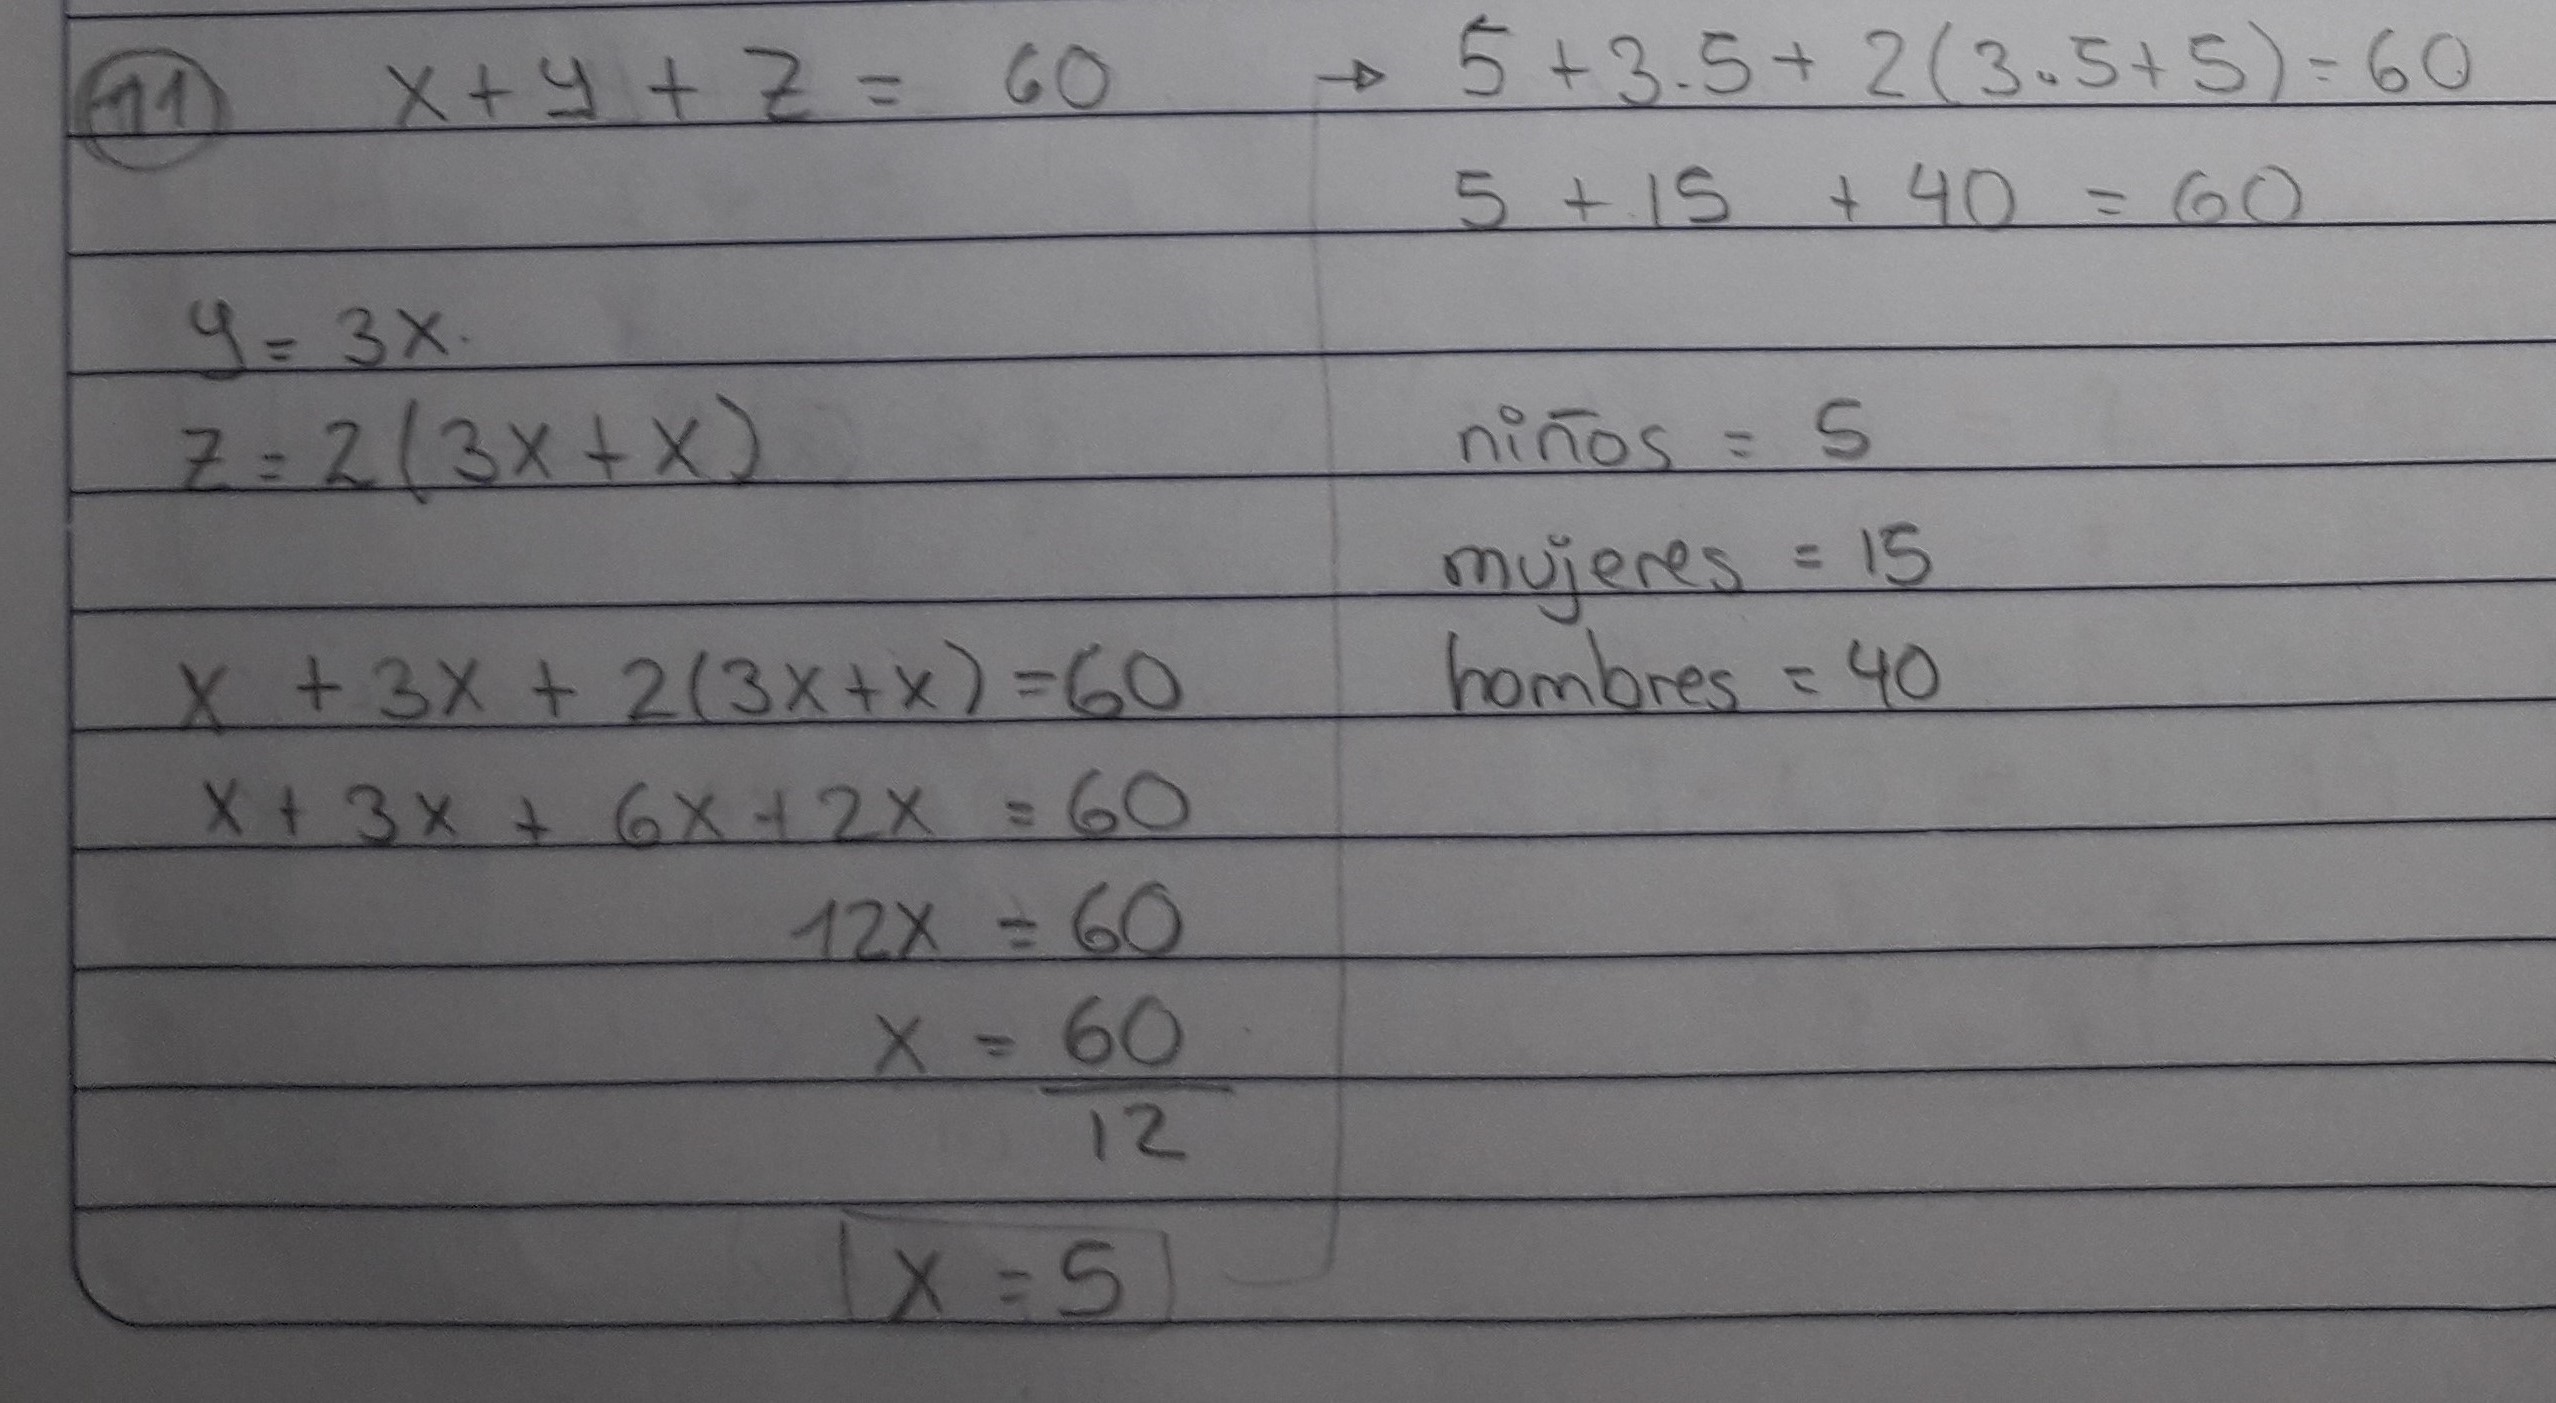 11 x + y + z = 60
y = 3x.
z = 2(3x + x)
x + 3x + 2(3x+x) = 60
x + 3x + 6x + 2x = 60
12x = 60
x = 60
12
x = 5
→ 5 + 3.5 + 2(3.5+5) = 60
5 + 15 + 40 = 60
niños = 5
mujeres = 15
hombres = 40